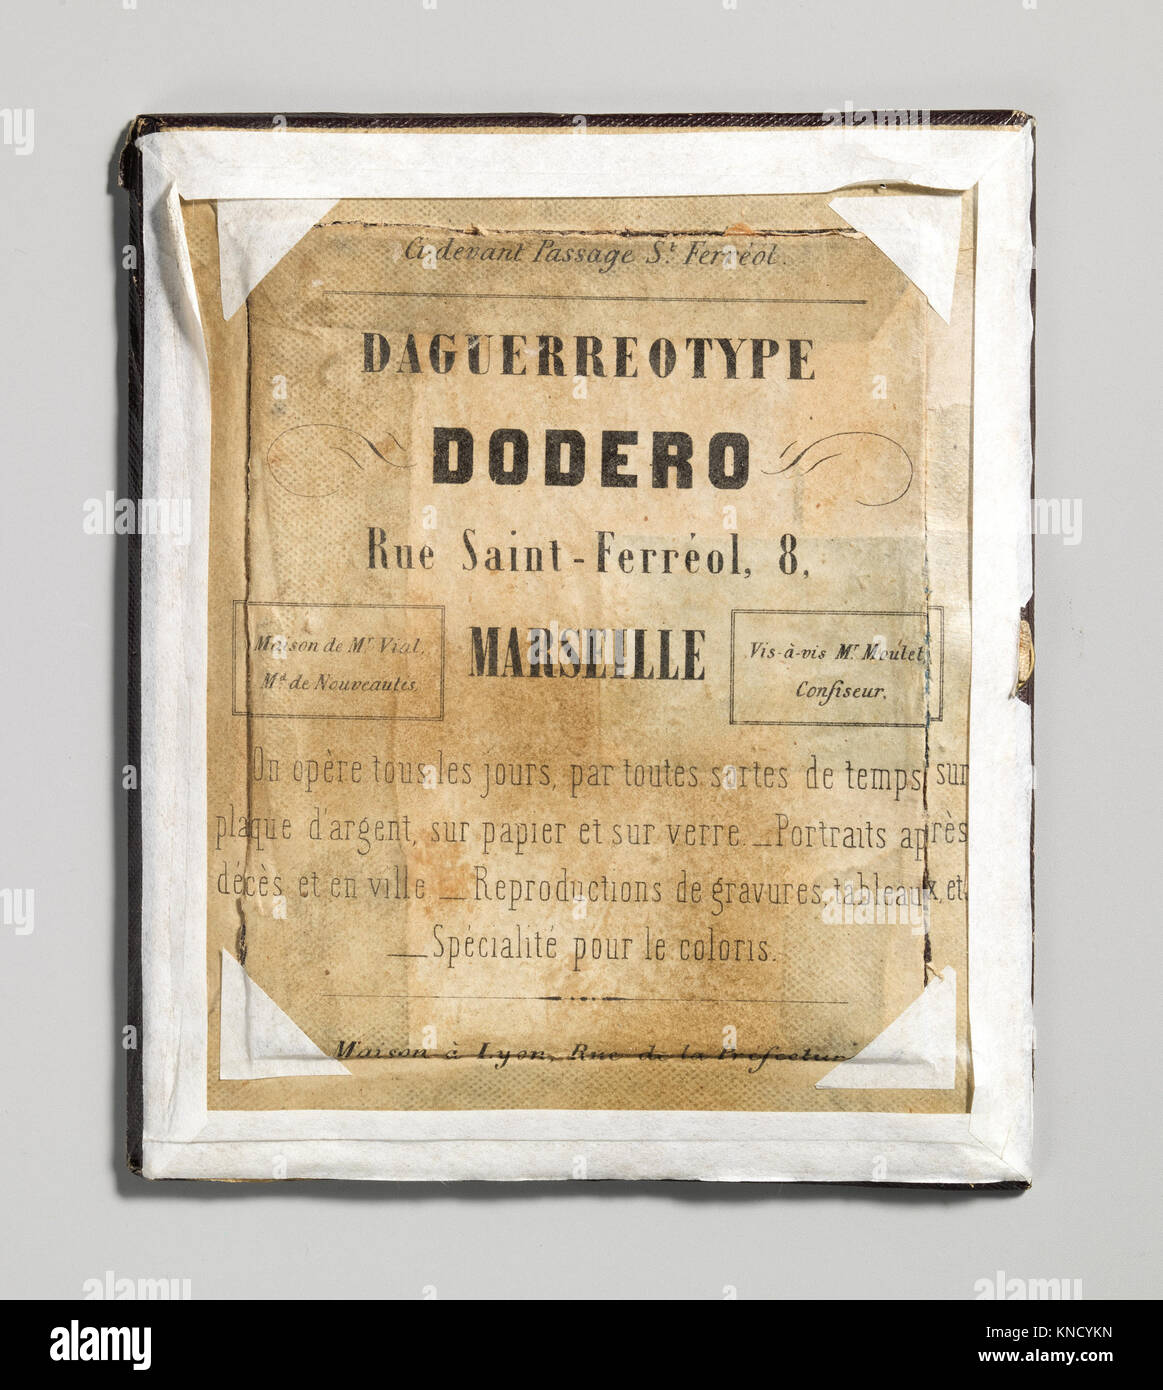 Ci-devant Passage St. Ferréol.
DAGUERREOTYPE
DODERO
Rue Saint-Ferréol, 8,
Maison de Mr Vial,
Md de Nouveautés
MARSEILLE
Vis-à-vis Mr Moulet
Confiseur.
On opère tous les jours, par toutes sortes de temps, sur
plaque d'argent, sur papier et sur verre._Portraits après
décès et en ville _Reproductions de gravures, tableaux, et
_Spécialité pour le coloris.
Maison à Lyon, Rue de la Préfectur
alamy
Image ID: KNCYKN
www.alamy.com